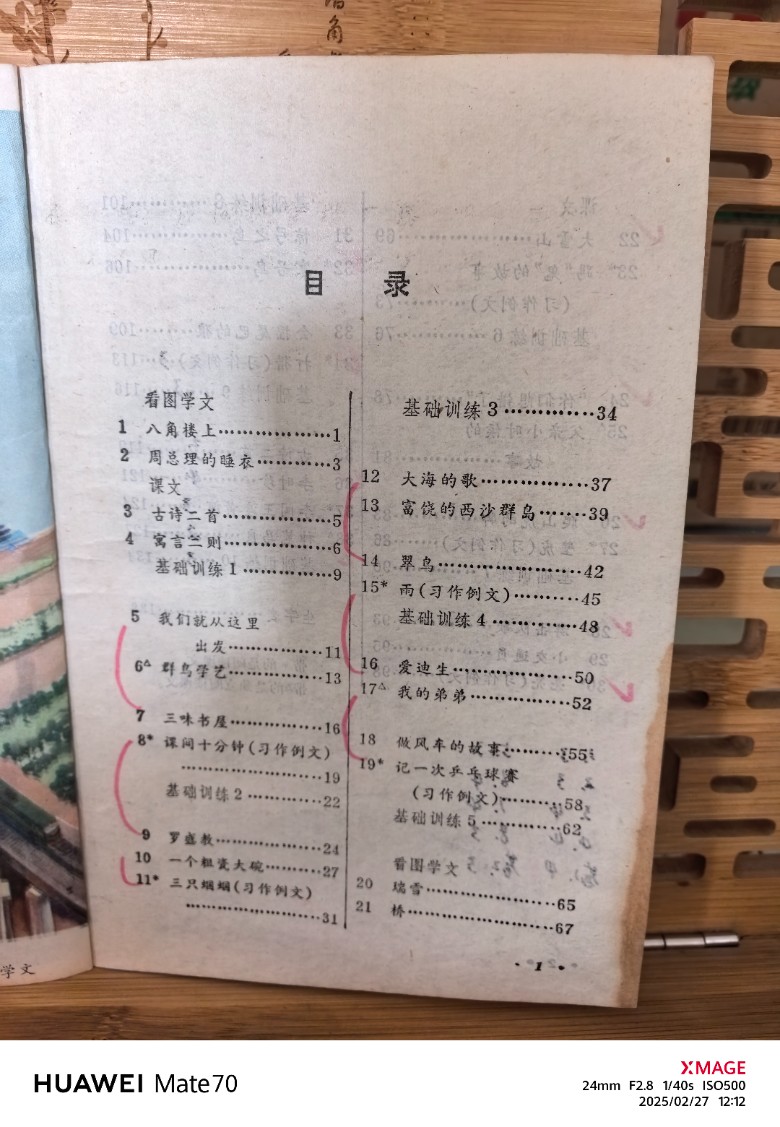 目 录
看图学文
1 八角楼上………………1
2 周总理的睡衣…………3
课文
3 古诗二首………………5
4 寓言二则………………6
基础训练1……………9
5 我们就从这里
出发……………11
6△ 群鸟学艺……………13
7 三味书屋……………16
8* 课间十分钟(习作例文)
…………………19
基础训练2……………22
9 罗盛教………………24
10 一个粗瓷大碗………27
11* 三只蝈蝈(习作例文)
…………………31
基础训练3…………34
12 大海的歌……………37
13 富饶的西沙群岛……39
14 翠鸟…………………42
15* 雨(习作例文)………45
基础训练4……………48
16 爱迪生………………50
17△ 我的弟弟……………52
18 做风车的故事………55
19* 记一次乒乓球赛
(习作例文)………58
基础训练5…………62
看图学文
20 瑞雪…………………65
21 桥……………………67
·1·
学文
HUAWEI Mate70
XMAGE
24mm F2.8 1/40s ISO500
2025/02/27 12:12